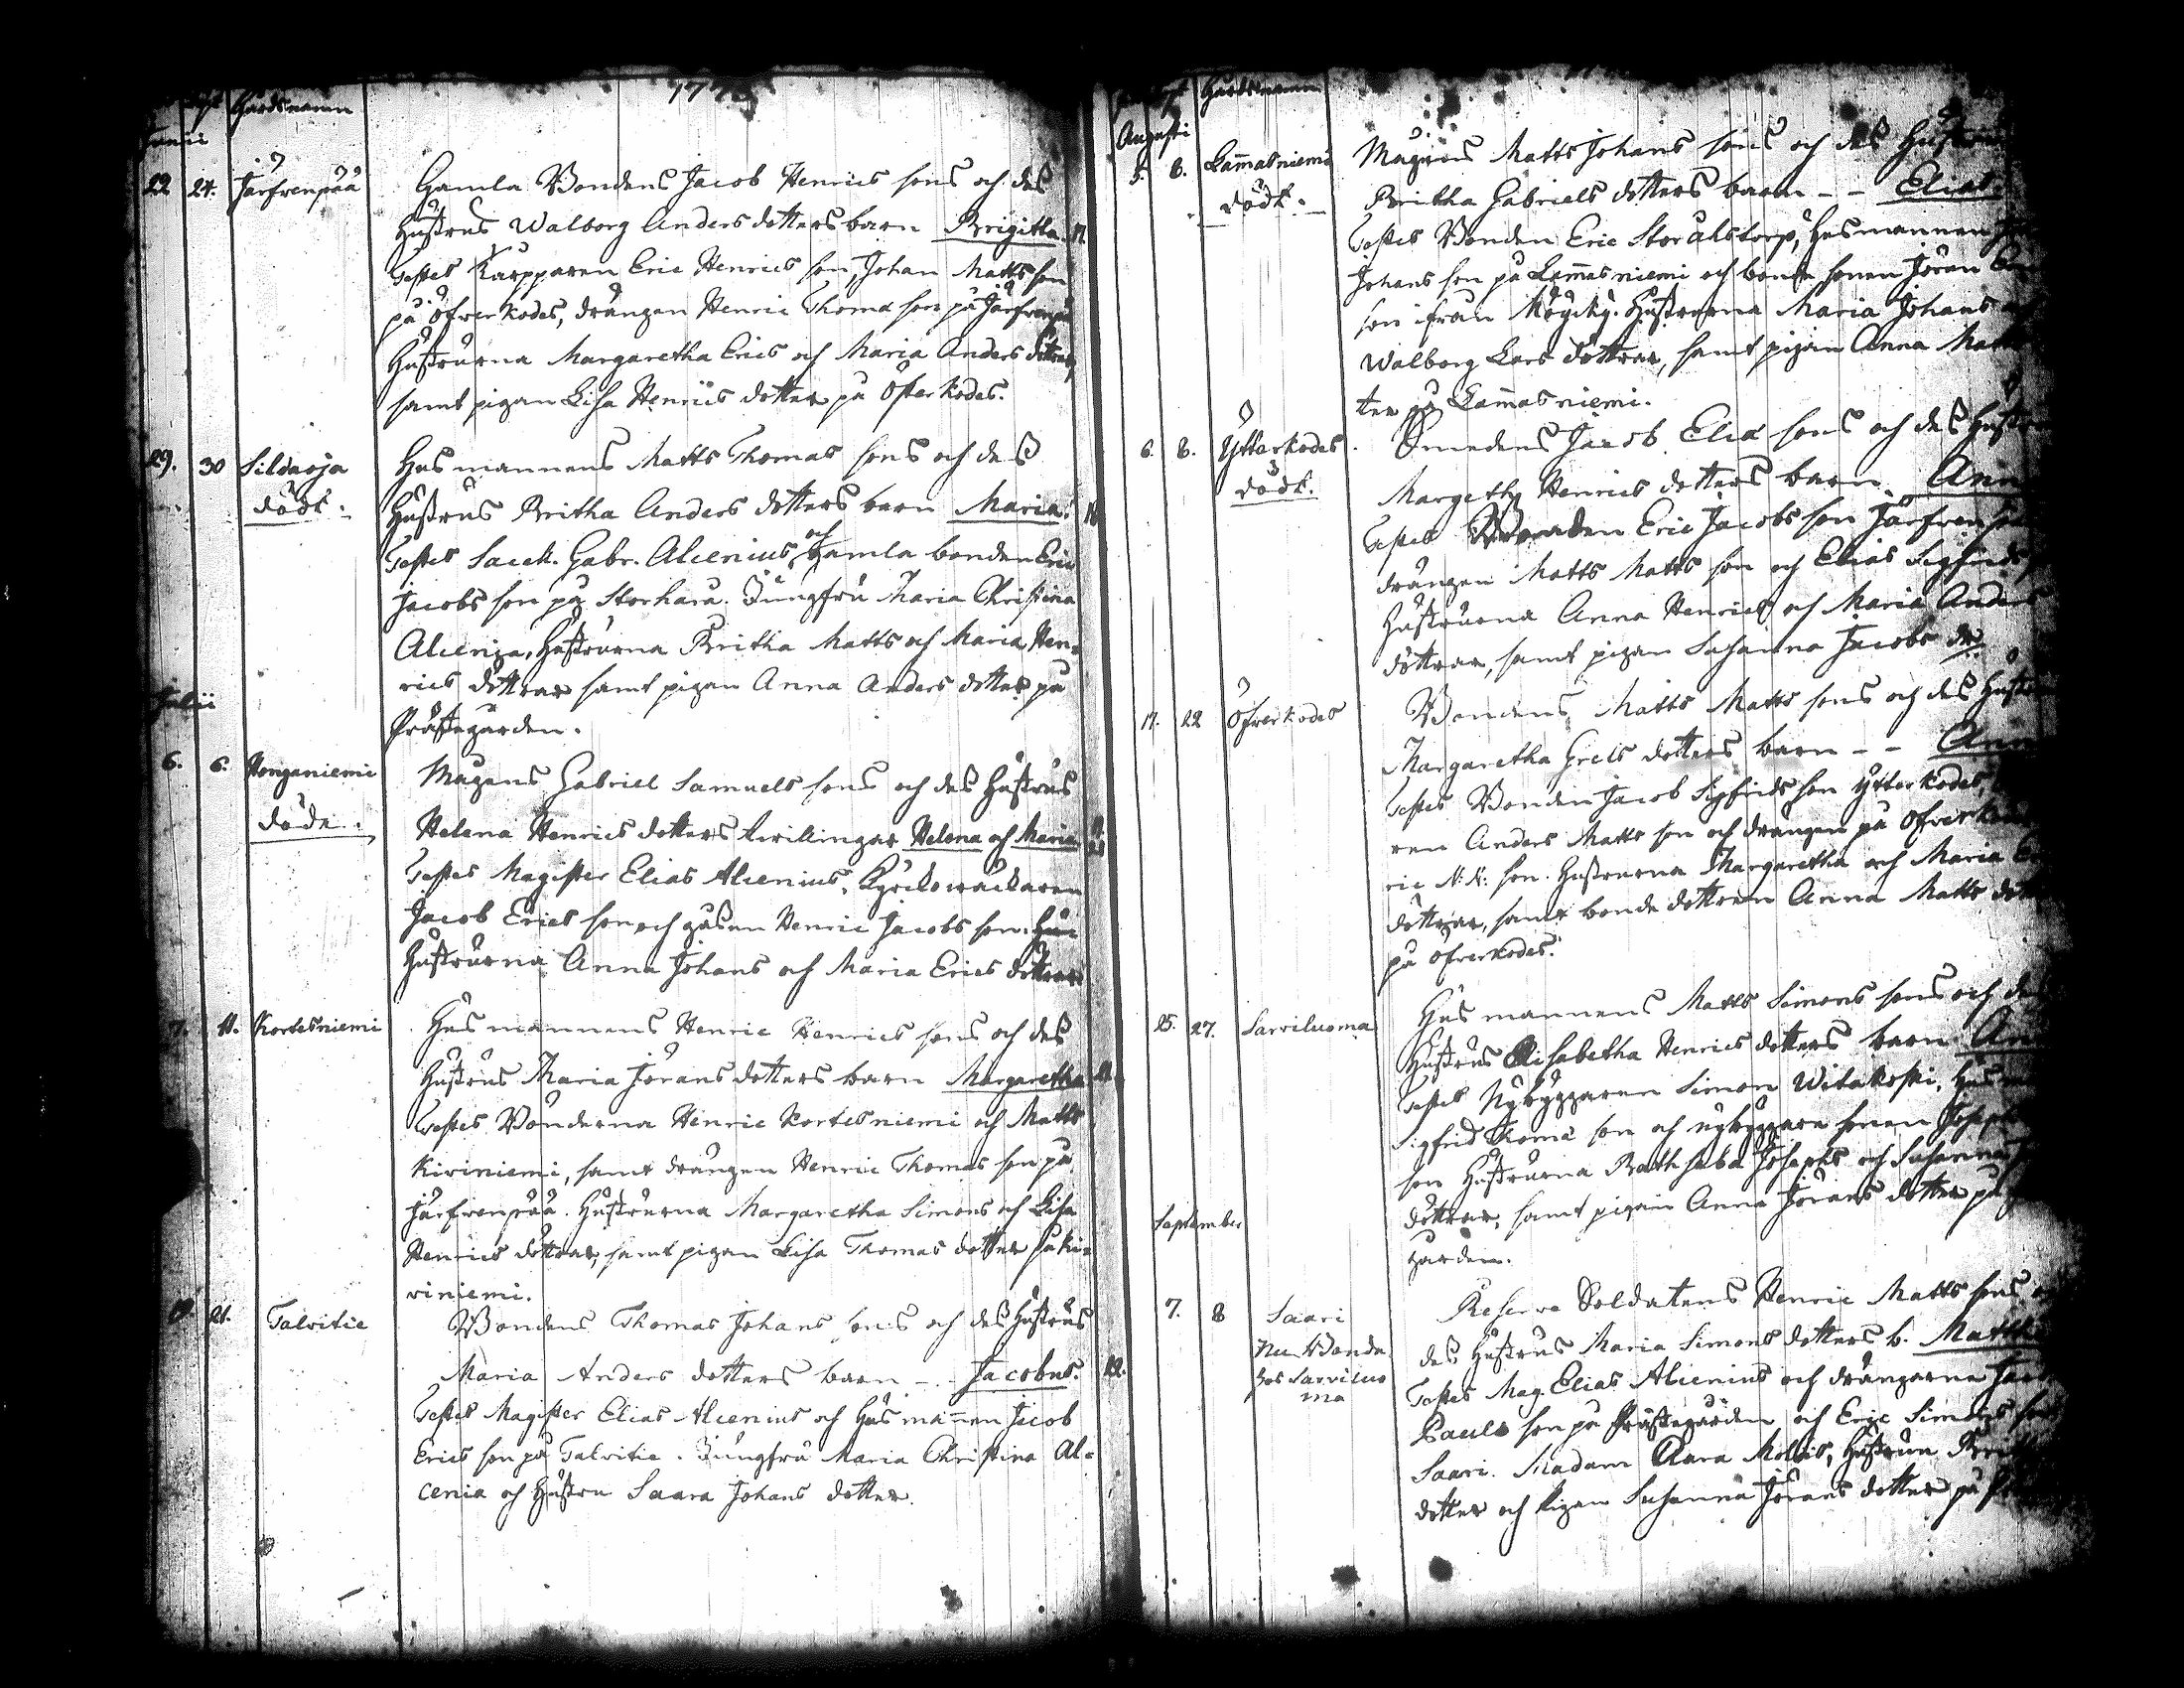 177
Gårdsnamn
Junii
22 24. Järfvenpää Gamla Bondens Jacob Henrics sons och des
Hustrus Walborg Anders dotters barn Brigitta. 17.
Testes Karpparen Eric Henrics son, Johan Matts son
på Öfverkodes, drängen Henric Thomæ son på Järfvenpä
Hustrurna Margaretha Erics och Maria Anders döttrar,
samt pigan Lisa Henrics dotter på Öfterkodes.
29. 30 Sildaoja Husmannens Matts Thomas sons och des
dödt. Hustrus Britha Anders dotters barn Maria.
Testes Sacell. Gabr. Alcenius, och Gamla bonden Eric
Jacobs son på Storhara. Jungfru Maria Christina
Alcenia, Hustrurna Britha Matts och Maria Hen-
rics döttrar samt pigan Anna Anders dotter på
Julii
Prästegården.
6. 6. Honganiemi Mågens Gabriel Samuels sons och des Hustrus
döde. Helena Henrics dotters twillingar Helena och Maria
Testes Magister Elias Alcenius, Kyrckowäckaren
Jacob Erics son och gåsen Henric Jacobs son. Hu
Hustrurna Anna Johans och Maria Erics döttrar
7. 11. Kortesniemi Husmannens Henric Henrics sons och des
Hustrus Maria Jörans dotters barn Margaretha
Testes Bönderna Henric Kortesniemi och Matts
Kiviniemi, samt drängen Henric Thomas son på
Järfvenpää. Hustrurna Margaretha Simons och Lisa
Henrics döttrar, samt pigan Lisa Thomas dotter på Ki-
viniemi.
21. Talvitie Bondens Thomas Johans sons och des Hustrus
Maria Anders dotters barn - . Jacobus. 12.
Testes Magister Elias Alcenius och Husmannen Jacob
Erics son på Talvitie. Jungfru Maria Christina Al-
cenia och Hustru Saara Johans dotter.
Gårdsnamn
Augusti
5. 8. Lam̄asniemi Mågens Matts Johans sons och des Hustrus
dödt. Britha Gabriels dotters barn - - Elias.
Testes Bonden Eric Storåhstorp, Husmannen
Johans son på Lam̄asniemi och bonde sonen Jöran
son ifrån Möycky. Hustrurna Maria Johans
Walborg Lars döttrar, samt pigan Anna Matts
ter på Lam̄asniemi.
6. 8. Ytterkodes Smedens Jacob Eliæ sons och des Hust
dödt. Margeth. Henrics dotters barn. Ann
Testes Bonden Eric Jacobs son Järfvenp
drängen Matts Matts son och Elias Sigfrids
Hustrurna Anna Henrics och Maria Anders
döttrar, samt pigan Susanna Jacobs dr.
17. 22 Öfverkodes Bondens Matts Matts sons och des Hust
Margaretha Grels dotters barn - - Ann
Testes Bonden Jacob Sigfrids son Ytterkodes,
ren Anders Matts son och drängen på Öfverkodes
ric N: N: son. Hustrurna Margaretha och Maria
döttrar, samt bonde dottren Anna Matts dott
på Öfverkodes.
25. 27. Sarviluoma Husmannens Matts Simons sons och des
Hustrus Elisabetha Henrics dotters barn An
Testes Nybyggaren Simon Witakoski, Husm
Sigfrid Thomæ son och nybyggare sonen Joseph
son Hustrurna Bathseba Josephs och Susanna
döttrar, samt pigan Anna Jörans dotter på
garden.
September
7. 8 Saari Reserve Soldatens Henric Matts sons
Nu Bonde des Hustrus Maria Simons dotters b. Matth
hos Sarviluo Testes Mag. Elias Alcenius och drängarna
ma Pauls son på Prästegården och Eric Simons son
Saari. Madam Clara Mollis, Hustrun
dotter och Pigan Susanna Jörans dotter på